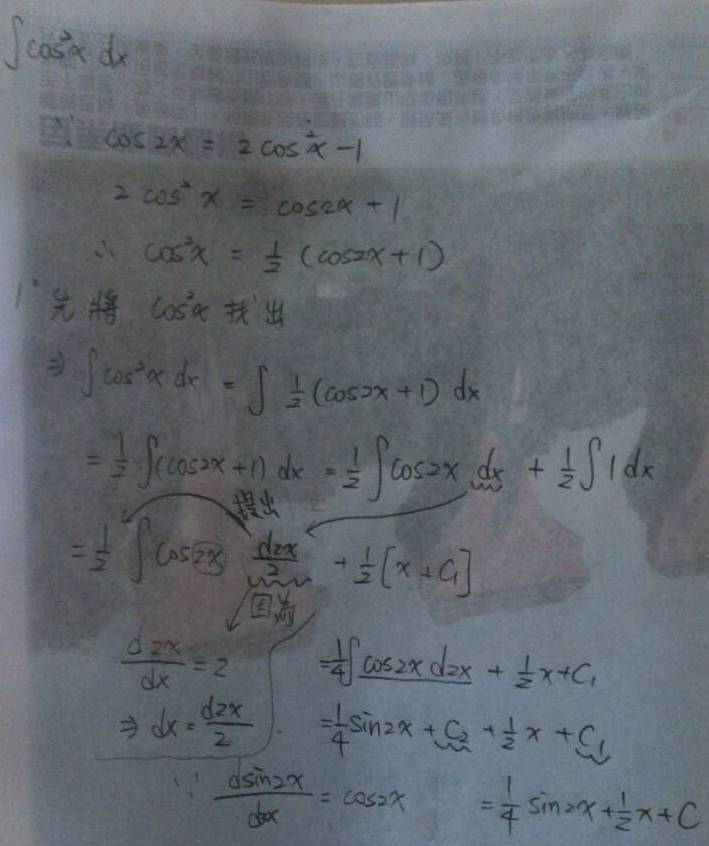 ∫cos²x dx
∵ cos2x = 2cos²x - 1
2cos²x = cos2x + 1
∴ cos²x = 1/2 (cos2x + 1)
1° 先將 cos²x 找出
⇒ ∫cos²x dx = ∫ 1/2 (cos2x + 1) dx
= 1/2 ∫(cos2x + 1) dx = 1/2 ∫cos2x dx + 1/2 ∫1 dx
提出
= 1/2 ∫cos2x d2x/2 + 1/2 [x + C₁]
因為
d2x/dx = 2
⇒ dx = d2x/2
= 1/4 ∫cos2x d2x + 1/2 x + C₁
= 1/4 sin2x + C₂ + 1/2 x + C₁
∵ dsin2x/d2x = cos2x
= 1/4 sin2x + 1/2 x + C